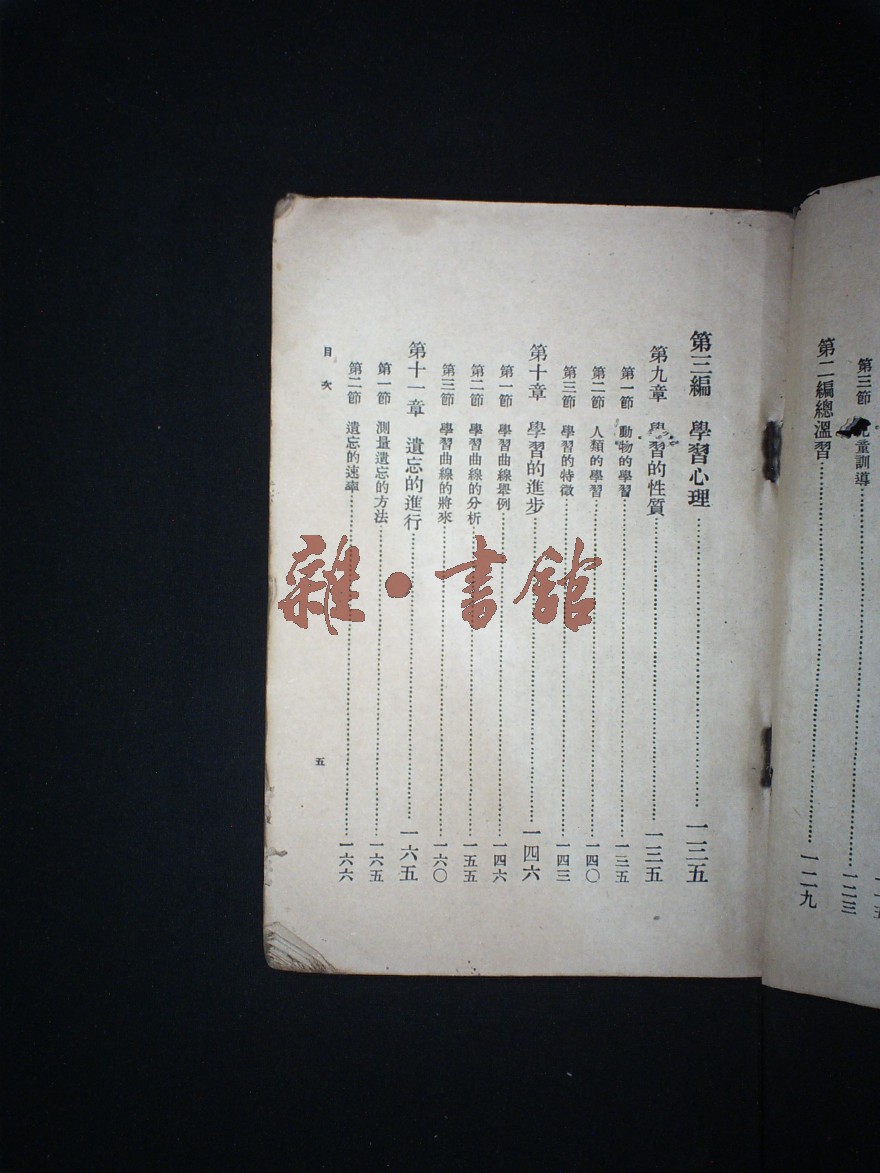 第三節　兒童訓導……一二三
第二編總溫習……一二九
第三編　學習心理……一三五
第九章　學習的性質……一三五
第一節　動物的學習……一三五
第二節　人類的學習……一四〇
第三節　學習的特徵……一四三
第十章　學習的進步……一四六
第一節　學習曲線舉例……一四六
第二節　學習曲線的分析……一五五
第三節　學習曲線的將來……一六〇
第十一章　遺忘的進行……一六五
第一節　測量遺忘的方法……一六五
第二節　遺忘的速率……一六六
目次
五
雜·書館